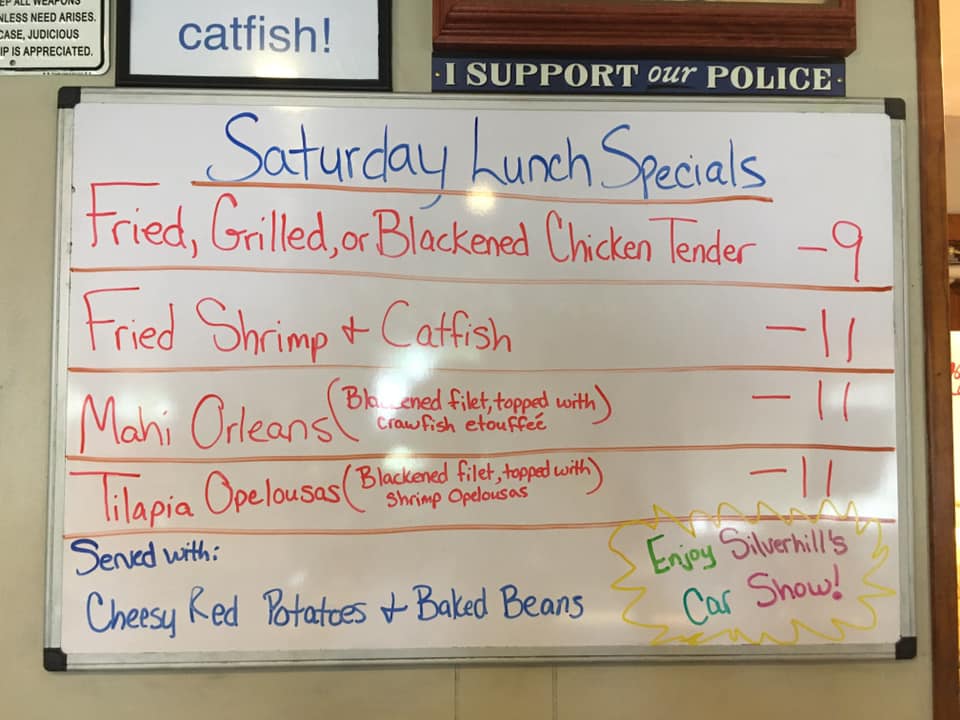 NLESS NEED ARISES.
CASE, JUDICIOUS
IP IS APPRECIATED.
catfish!
·I SUPPORT our POLICE·
Saturday Lunch Specials
Fried, Grilled, or Blackened Chicken Tender - 9
Fried Shrimp + Catfish - 11
Mahi Orleans (Blackened filet, topped with - 11
crawfish etouffeé)
Tilapia Opelousas (Blackened filet, topped with - 11
Shrimp Opelousas)
Served with:
Cheesy Red Potatoes + Baked Beans
Enjoy Silverhill's
Car Show!